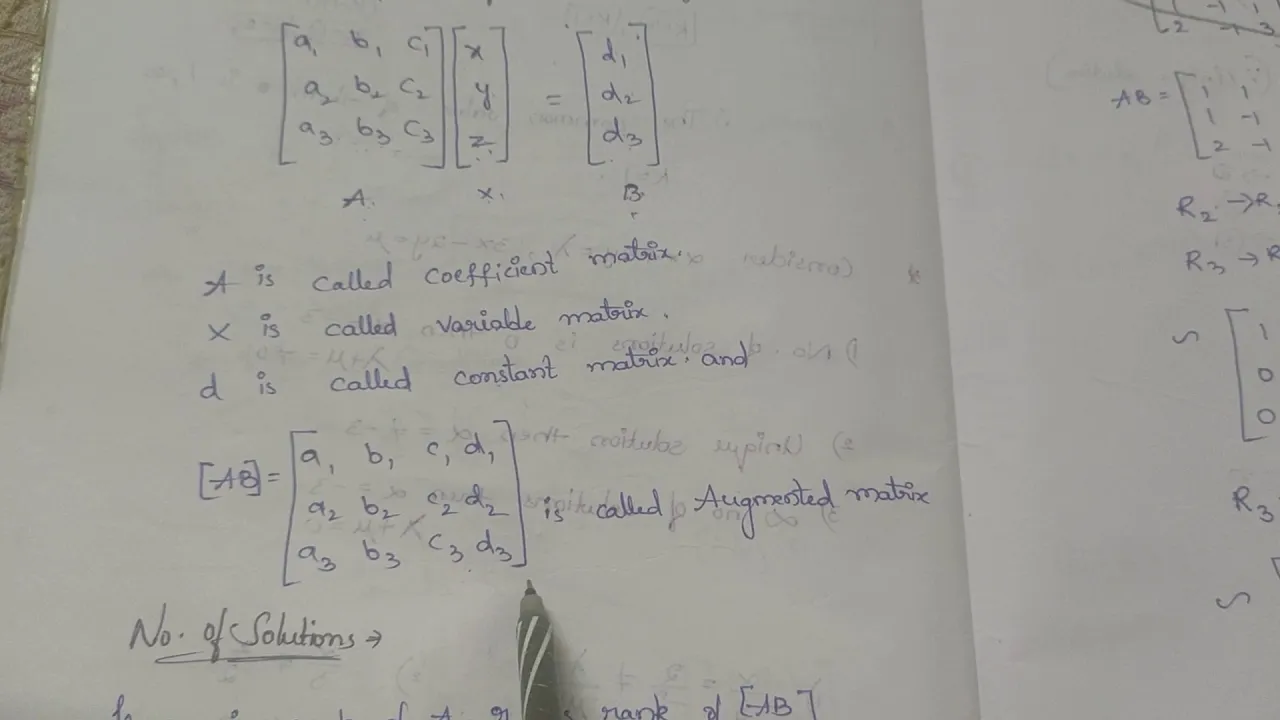 [a₁ b₁ c₁] [x] = [d₁]
[a₂ b₂ c₂] [y] [d₂]
[a₃ b₃ c₃] [z] [d₃]
A. X. B.
A is called coefficient matrix.
X is called variable matrix.
d is called constant matrix. and
[AB] = [a₁ b₁ c₁ d₁]
[a₂ b₂ c₂ d₂] is called Augmented matrix
[a₃ b₃ c₃ d₃]
No. of Solutions →
rank of [AB]
2 -1 3
AB = [1 1
1 -1
2 -1
R₂ → R
R₃ → R
~ [1
0
0
R₃
~